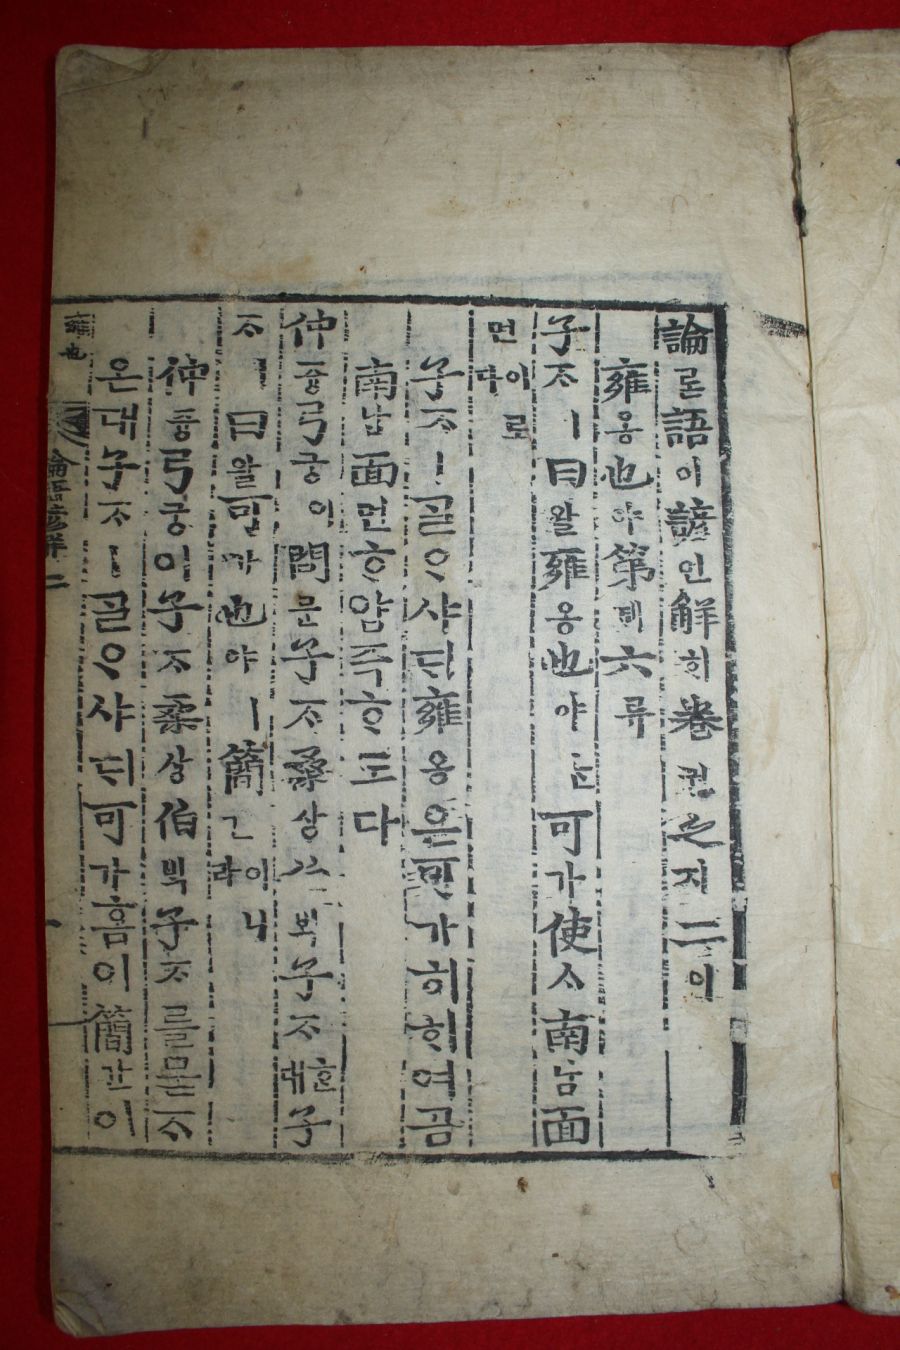 論론語어諺언解ᄒᆡ卷권之지二이
雍옹也야第뎨六류
子ᄌᆞㅣ曰왈雍옹也야ᄂᆞᆫ可가使ᄉᆞ南남面
면이로다
子ᄌᆞㅣᄀᆞᆯᄋᆞ샤ᄃᆡ雍옹은可가히ᄒᆞ여곰
南남面면ᄒᆞ얌즉ᄒᆞ도다
仲듕弓궁이問문子ᄌᆞ桑상伯ᄇᆡᆨ子ᄌᆞᄒᆞᆫ대子
ᄌᆞㅣ曰왈可가也야ㅣ簡간이니라
仲듕弓궁이子ᄌᆞ桑상伯ᄇᆡᆨ子ᄌᆞ를묻ᄌᆞ
온대子ᄌᆞㅣᄀᆞᆯᄋᆞ샤ᄃᆡ可가홈이簡간이
雍也
論語諺解 二